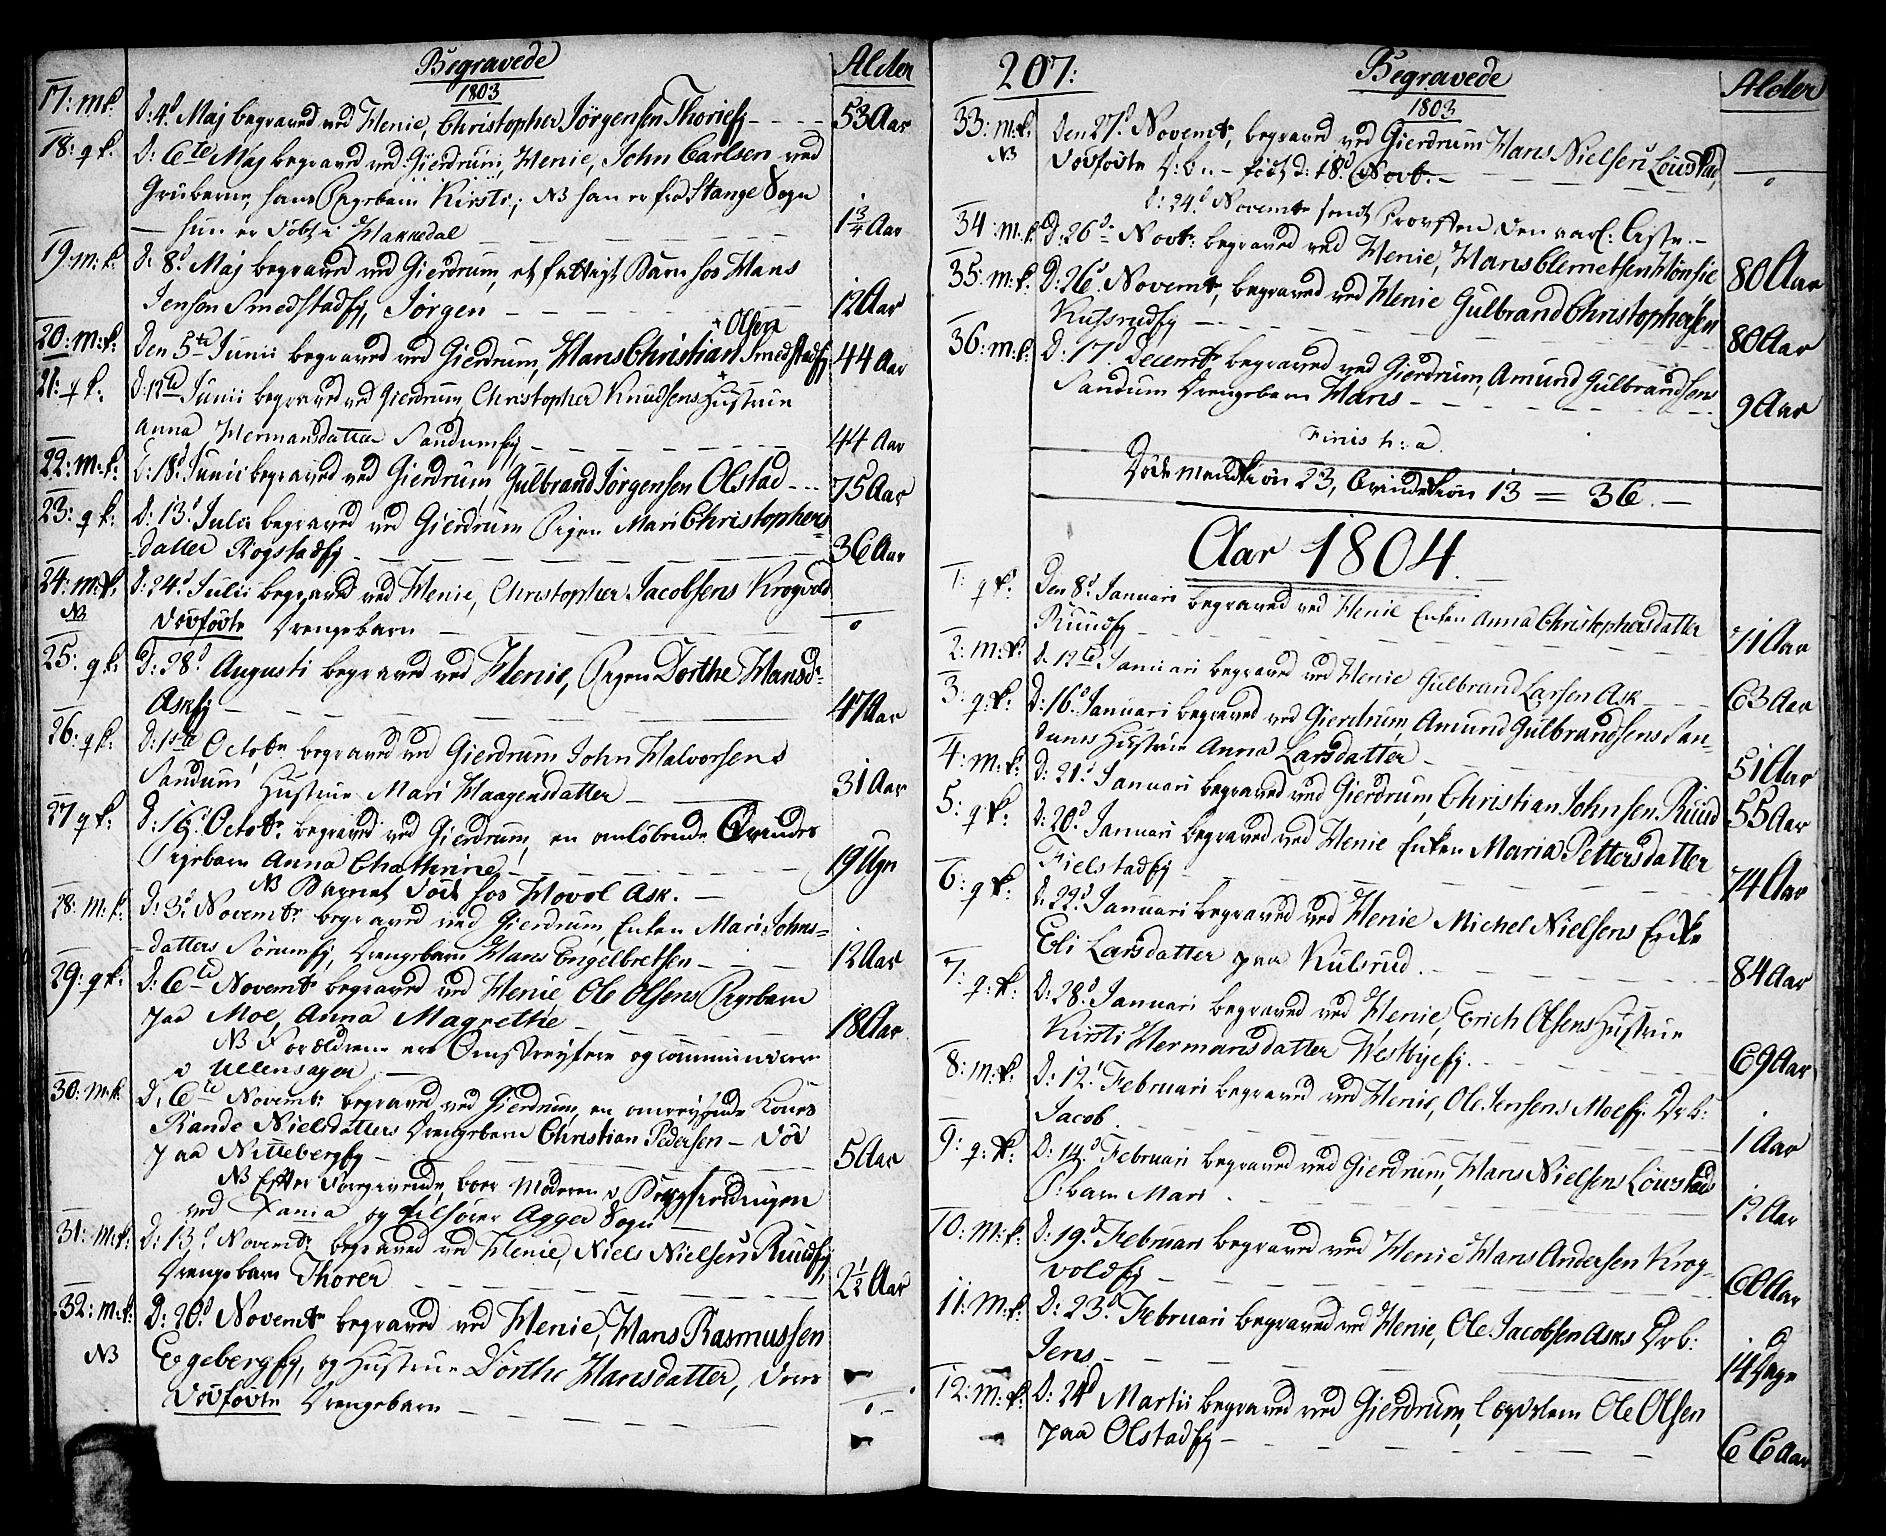 Begravede
1803
Alder
17: m k. D: 4d Maj begraved ved Henie, Christopher Jørgensen Thoriefj - - - 53 Aar
18: q k. D: 6te Maj begraved ved Gierdrum, Henie, John Carlsen ved
Gruberne hans Pigebarn Kirsti; NB han er fra Stange Sogn
- hun er døbt i Hakkedal - - - 1 3/4 Aar
19: m: k: D: 8d Maj begraved ved Gierdrum, et fattigt Barn hos Hans
Jensen Smedstadfj, Jørgen - - - 12 Aar
+ Olsen
20: m: k: Den 5te Junii begraved ved Gierdrum, Hans Christian Smedstadfj 44 Aar
21: q k. D: 12te Junii begraved ved Gierdrum, Christopher Knudsens Hustrue
Anna Hermansdatter Sandumfj - - - 44 Aar
22: m: k: D: 18d Junii begraved ved Gierdrum, Gulbrand Jørgensen Olstad - - - 75 Aar
23: q k: D: 13d Julii begraved ved Gierdrum Pigen Mari Christophers=
=datter Rogstadfj - - - 36 Aar
24: m: k. D: 24d Julii begraved ved Henie, Christopher Jacobsens Krogvold
NB Dødfødte Drengebarn - - - 0
25: q k: D: 28d Augusti begraved ved Henie, Pigen Dorthe Hansdr
Askfj - - - 47 Aar
26: q k: D: 1ste Octobr begraved ved Gierdrum John Halvorsens
Sandum Hustrue Mari Haagensdatter - 31 Aar
27 q k: D: 16d Octobr. begraved ved Gierdrum, en omløbende Qvindes
Pigebarn Anna Chathrine - - - 19 Ugr
NB Barnet døde hos Hovol Ask. -
28: m. k: D: 3d Novembr begraved ved Gierdrum, Enken Mari Johns=
=datters Sørumfj, Drengebarn Hans Engelbretsen - - 12 Aar
29: q k: D: 6te Novembr begraved ved Henie, Ole Olsens Pigebarn
paa Moe, Anna Magrethe - - - 18 Aar
NB Forældrene ere Omstreifere og communicere
i Ullensager. -
30: m k. D: 6te Novembr begraved ved Gierdrum, en omreysende Kones
Rande Nielsdatters Drengebarn Christian Pedersen - død
paa Nittebergfj - - - 5 Aar
NB Efter Foregivende, boer Moderen i
ved Xania og tilhører Agger Sogn -
31: m: k: D: 13d Novembr begraved ved Henie, Niels Nielsens Ruudfj
Drengebarn Thorer - - - 2 1/2 Aar
32: m: k: D: 20d Novembr begraved ved Henie, Hans Rasmussen
NB Egebergfj, og Hustrue Dorthe Hansdatter, deres
Dødfødte Drengebarn - - - 0 -
207:
Begravede
1803
Alder
33: m: k: Den 27d Novembr, begraved ved Gierdrum Hans Nielsens Løvstad
NB Dødfødte D: b: - født d: 18d Novbr. - - - 0
D: 24d Novembr sendt Provsten den vacl: Liste. -
34: m. k. D: 26d Novbr: begraved ved Henie, Hans Clemetsen Hønsie 80 Aar
35: m: k: D: 26d Novembr, begraved ved Henie Gulbrand Christophersen
Kulsrudfj - - - 80 Aar
36: m: k: D: 17d Decembr begraved ved Gierdrum, Amund Gulbrandsens
Sandum Drengebarn Hans - - - 9 Aar
Finis h: a.
Døde mandkiøn 23, Qvindekiøn 13 = 36. -
Aar 1804.
1: q k: Den 8d Januari begraved ved Henie Enken Anna Christophersdatter
Ruudfj - - - 71 Aar
2: m: k: D. 12te Januari begraved ved Henie Gulbrand Larsen Ask - - 63 Aar
3: q: k: D: 16d Januari begraved ved Gierdrum, Amund Gulbrandsens San=
dums Hustrue Anna Larsdatter - - - 51 Aar
4: m: k: D: 21d Januari begraved ved Gierdrum, Christian Johnsen Ruud 55 Aar
5: q k: D: 20d Januari begraved ved Henie Enken Maria Pettersdatter
Fielstadfj - - - 74 Aar
6: q k: D: 22d Januari begraved ved Henie Michel Nielsens Enke
Eli Larsdatter paa Kulsrud. - - - 84 Aar
7: q: k: D: 28d Januari begraved ved Henie, Erich Olsens Hustrue
Kirsti Hermansdatter Westbyefj. - - - 69 Aar
8: m: k: D: 12d Februari begraved ved Henie, Ole Jensens Moefj. Drb:
Jacob. - - - 1 Aar
9: q: k: D: 14d Februari begraved ved Gierdrum, Hans Nielsens Løvstads
P: barn Mari. - - - 12 Aar
10: m: k: D: 19d Februari begraved ved Henie Hans Andersen Krog-
voldfj - - - 60 Aar
11: m: k: D: 23d Februari begraved ved Henie, Ole Jacobsen Asks Drb:
Jens - - - 14 Dage
12: m: k: D: 24d Martii begraved ved Gierdrum, Lægdslem Ole Olsen
paa Olstadfj - - - 66 Aar